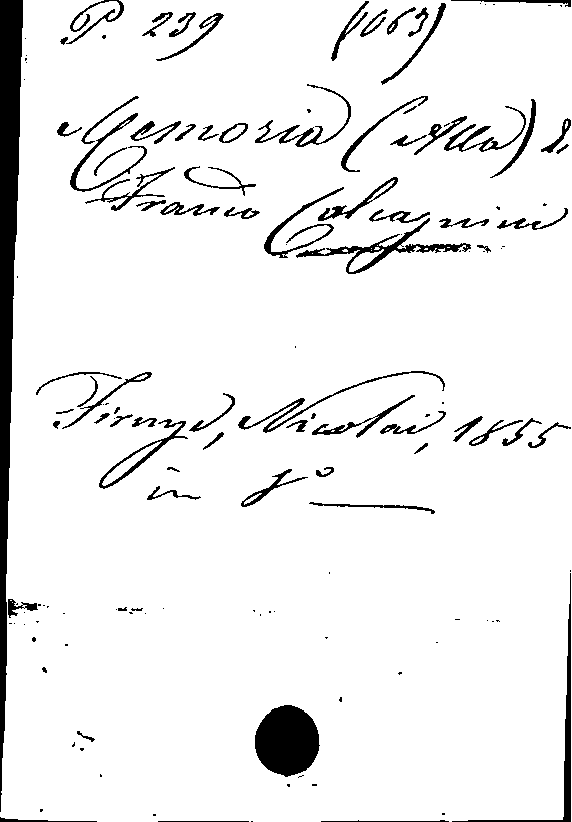 P. 239 (1063)
Memoria (Alla) di
Franco Calcagnini
Firenze, Nicolai, 1855
in 8º